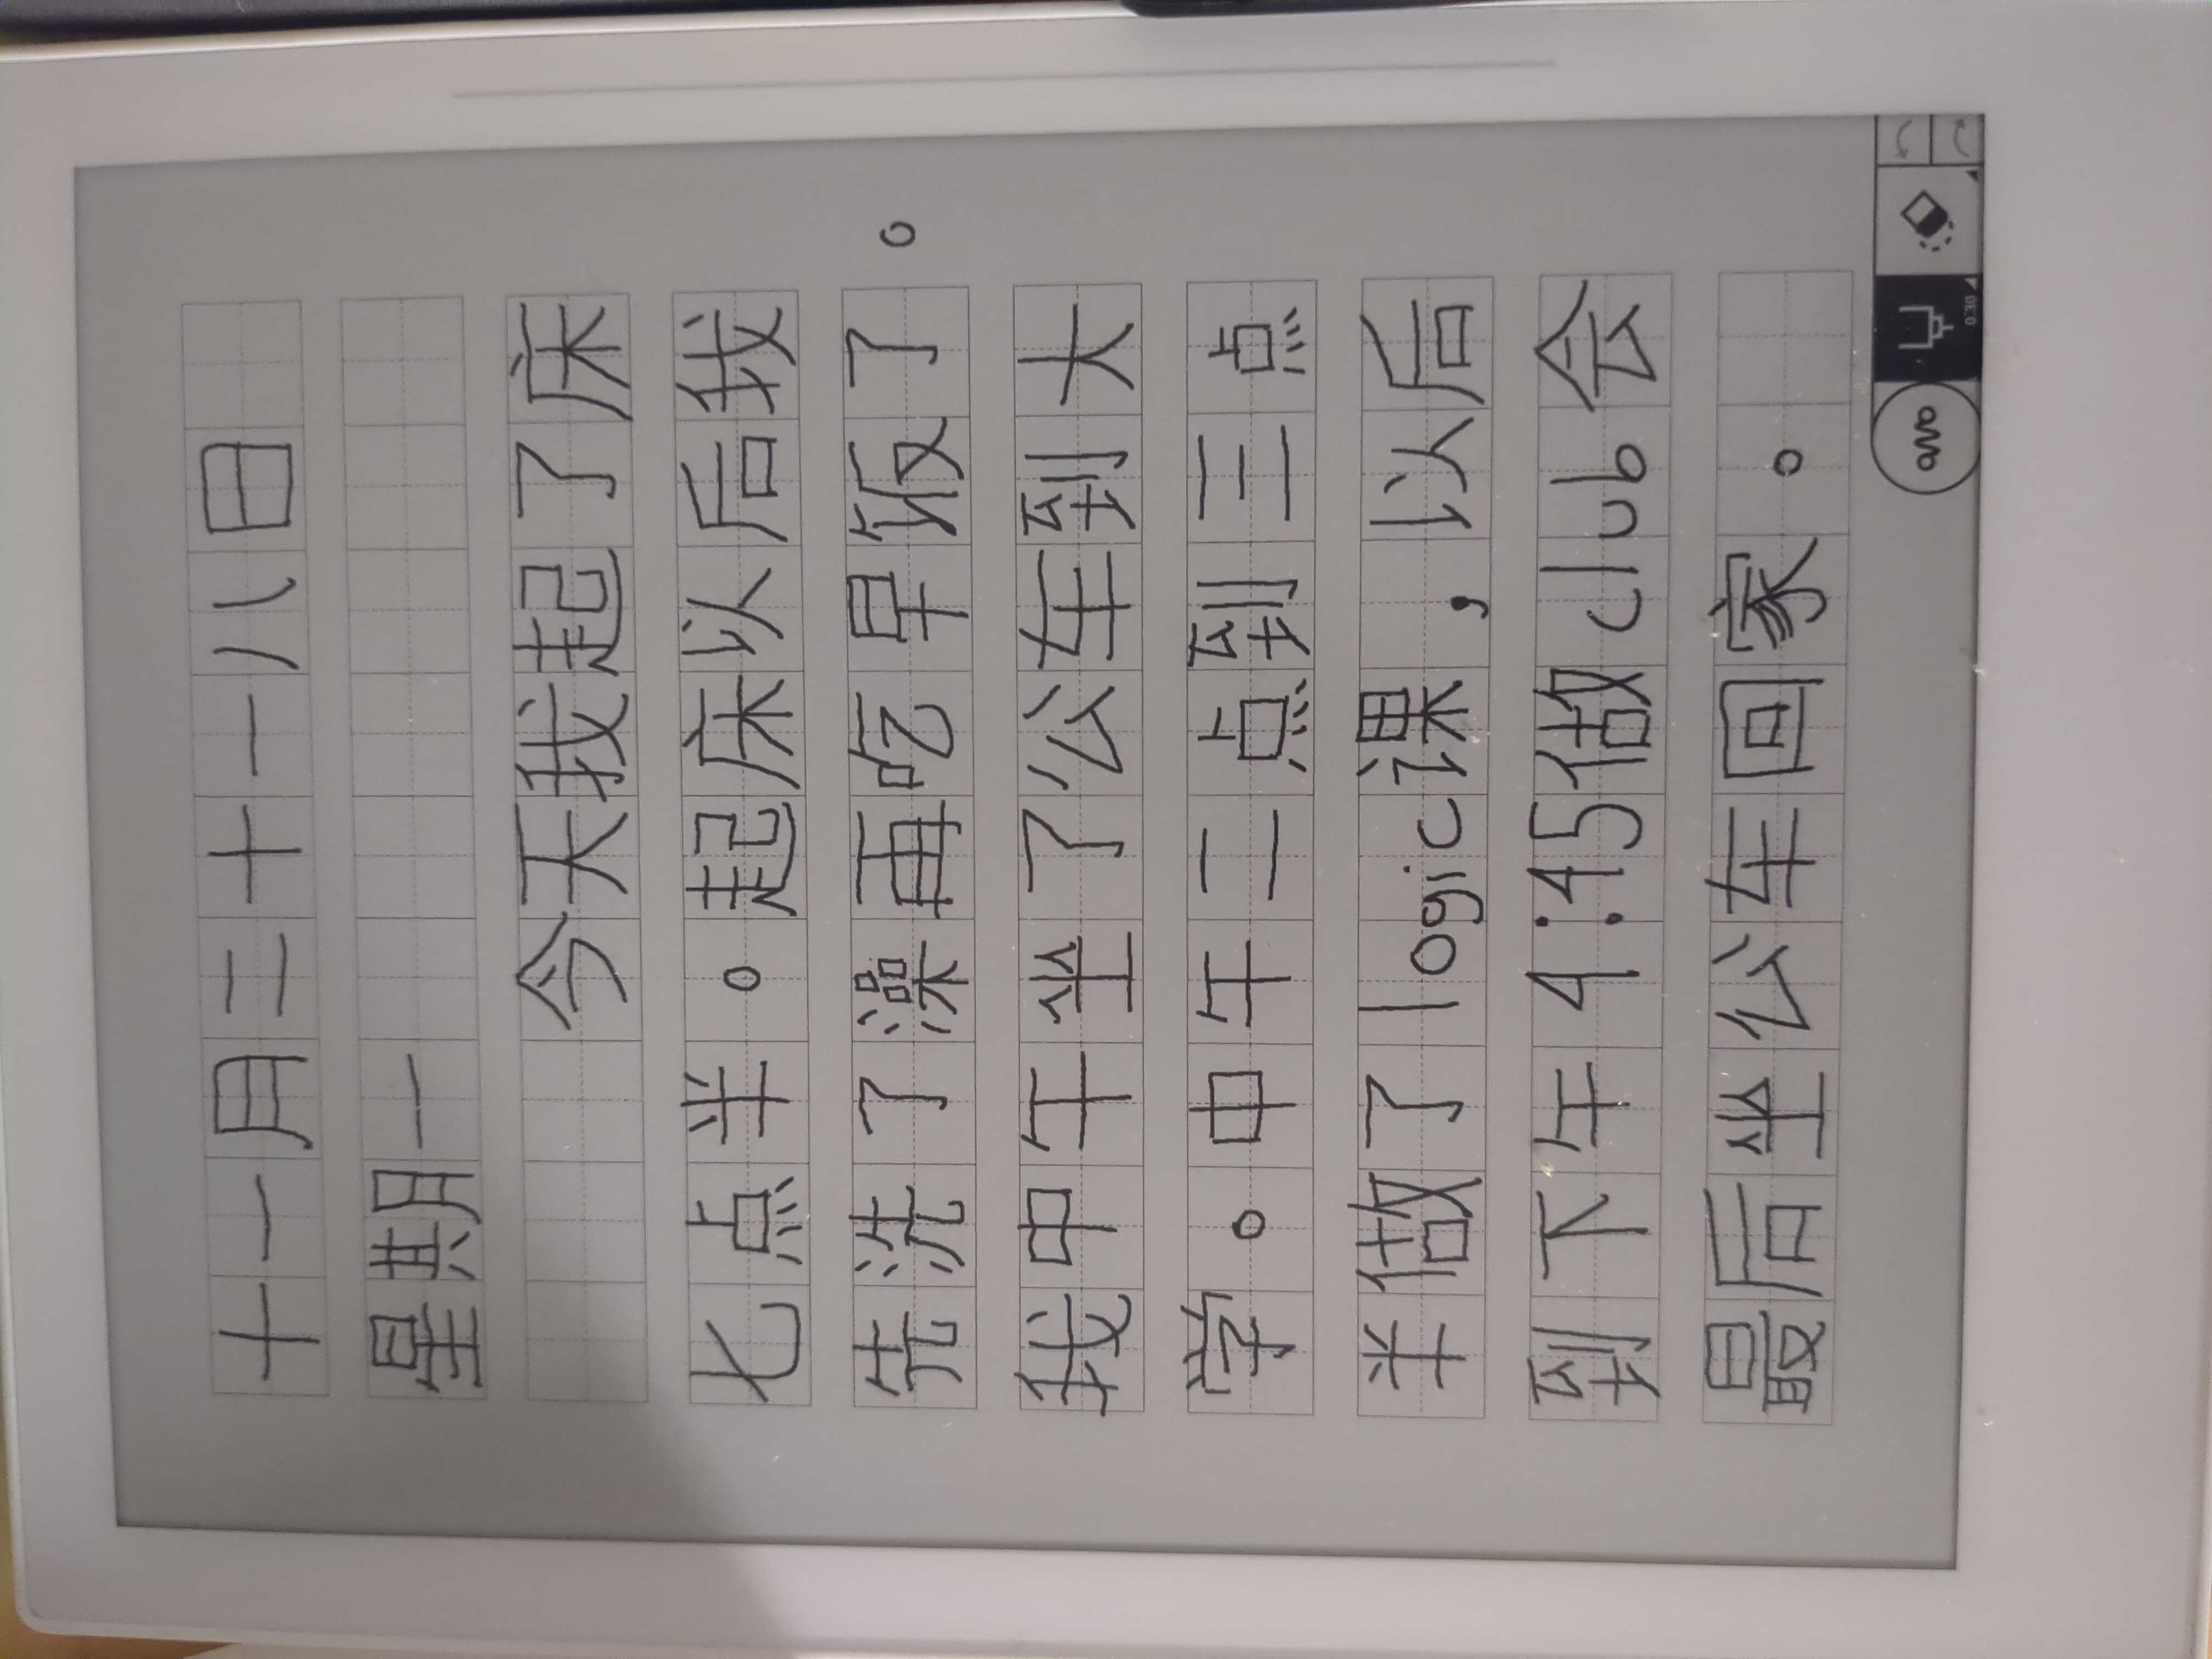 十一月二十一八日
星期一
今天我起了床
七点半。起床以后我
先洗了澡再吃早饭了。
我中午坐了公车到大
学。中午二点到三点
半做了logic课，以后
到下午4:45做club会
最后坐公车回家。
0.30